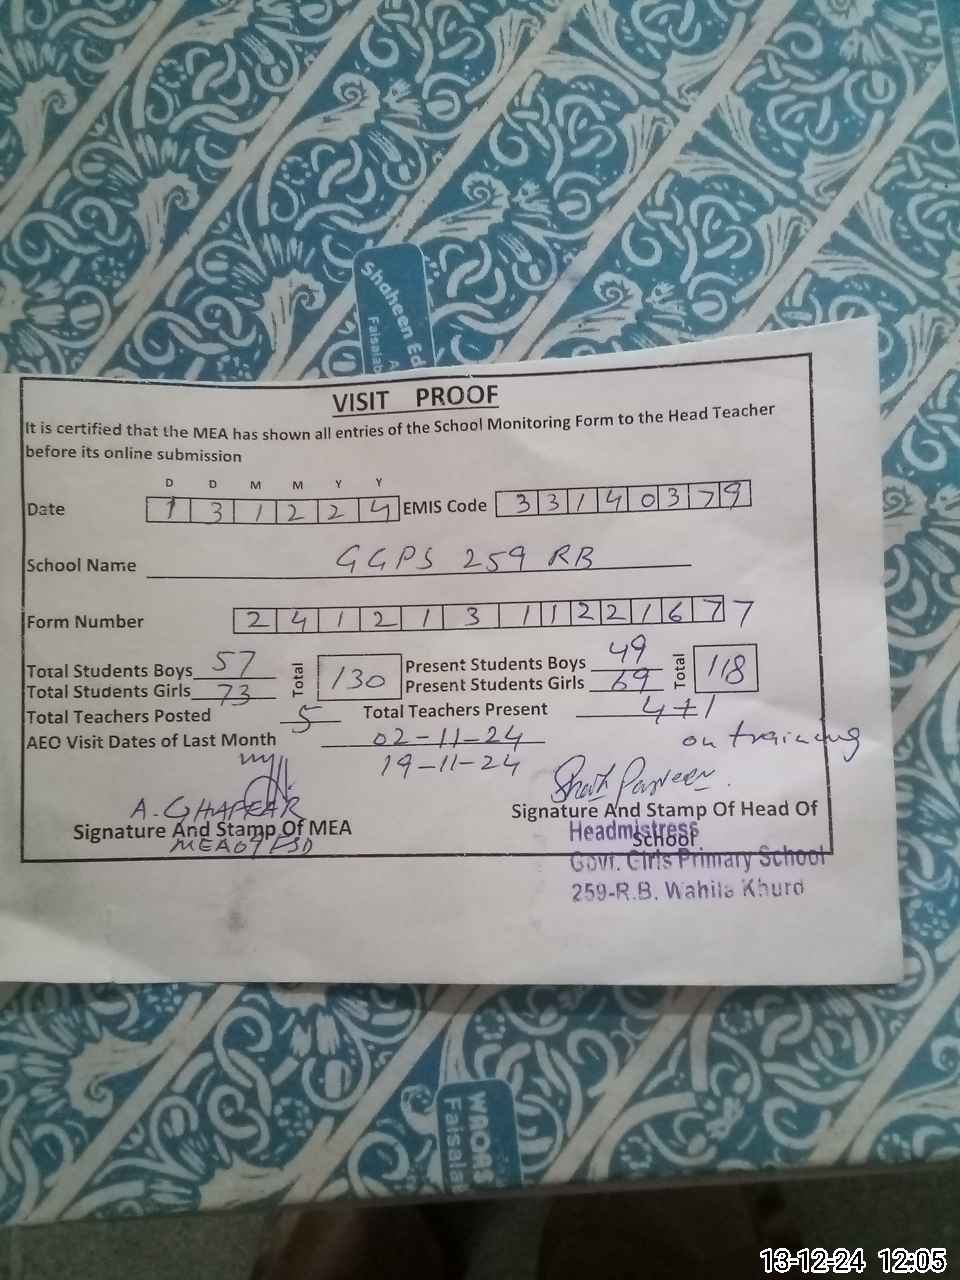 Shaheen Ed
Faisalab
VISIT PROOF
It is certified that the MEA has shown all entries of the School Monitoring Form to the Head Teacher
before its online submission
D D M M Y Y
Date 1 3 1 2 2 4 EMIS Code 3 3 1 4 0 3 7 9
School Name GGPS 259 RB
Form Number 2 4 1 2 1 3 1 1 2 2 1 6 7 7
Total Students Boys 57 Total 130 Present Students Boys 49 Total 118
Total Students Girls 73 Present Students Girls 69
Total Teachers Posted 5 Total Teachers Present 4+1
on training
AEO Visit Dates of Last Month 02-11-24
19-11-24
A. GHAFFAR
Signature And Stamp Of MEA
Signature And Stamp Of Head Of
School
Headmistress
Govt. Girls Primary School
259-R.B. Wahila Khurd
Faisalab
13-12-24 12:05